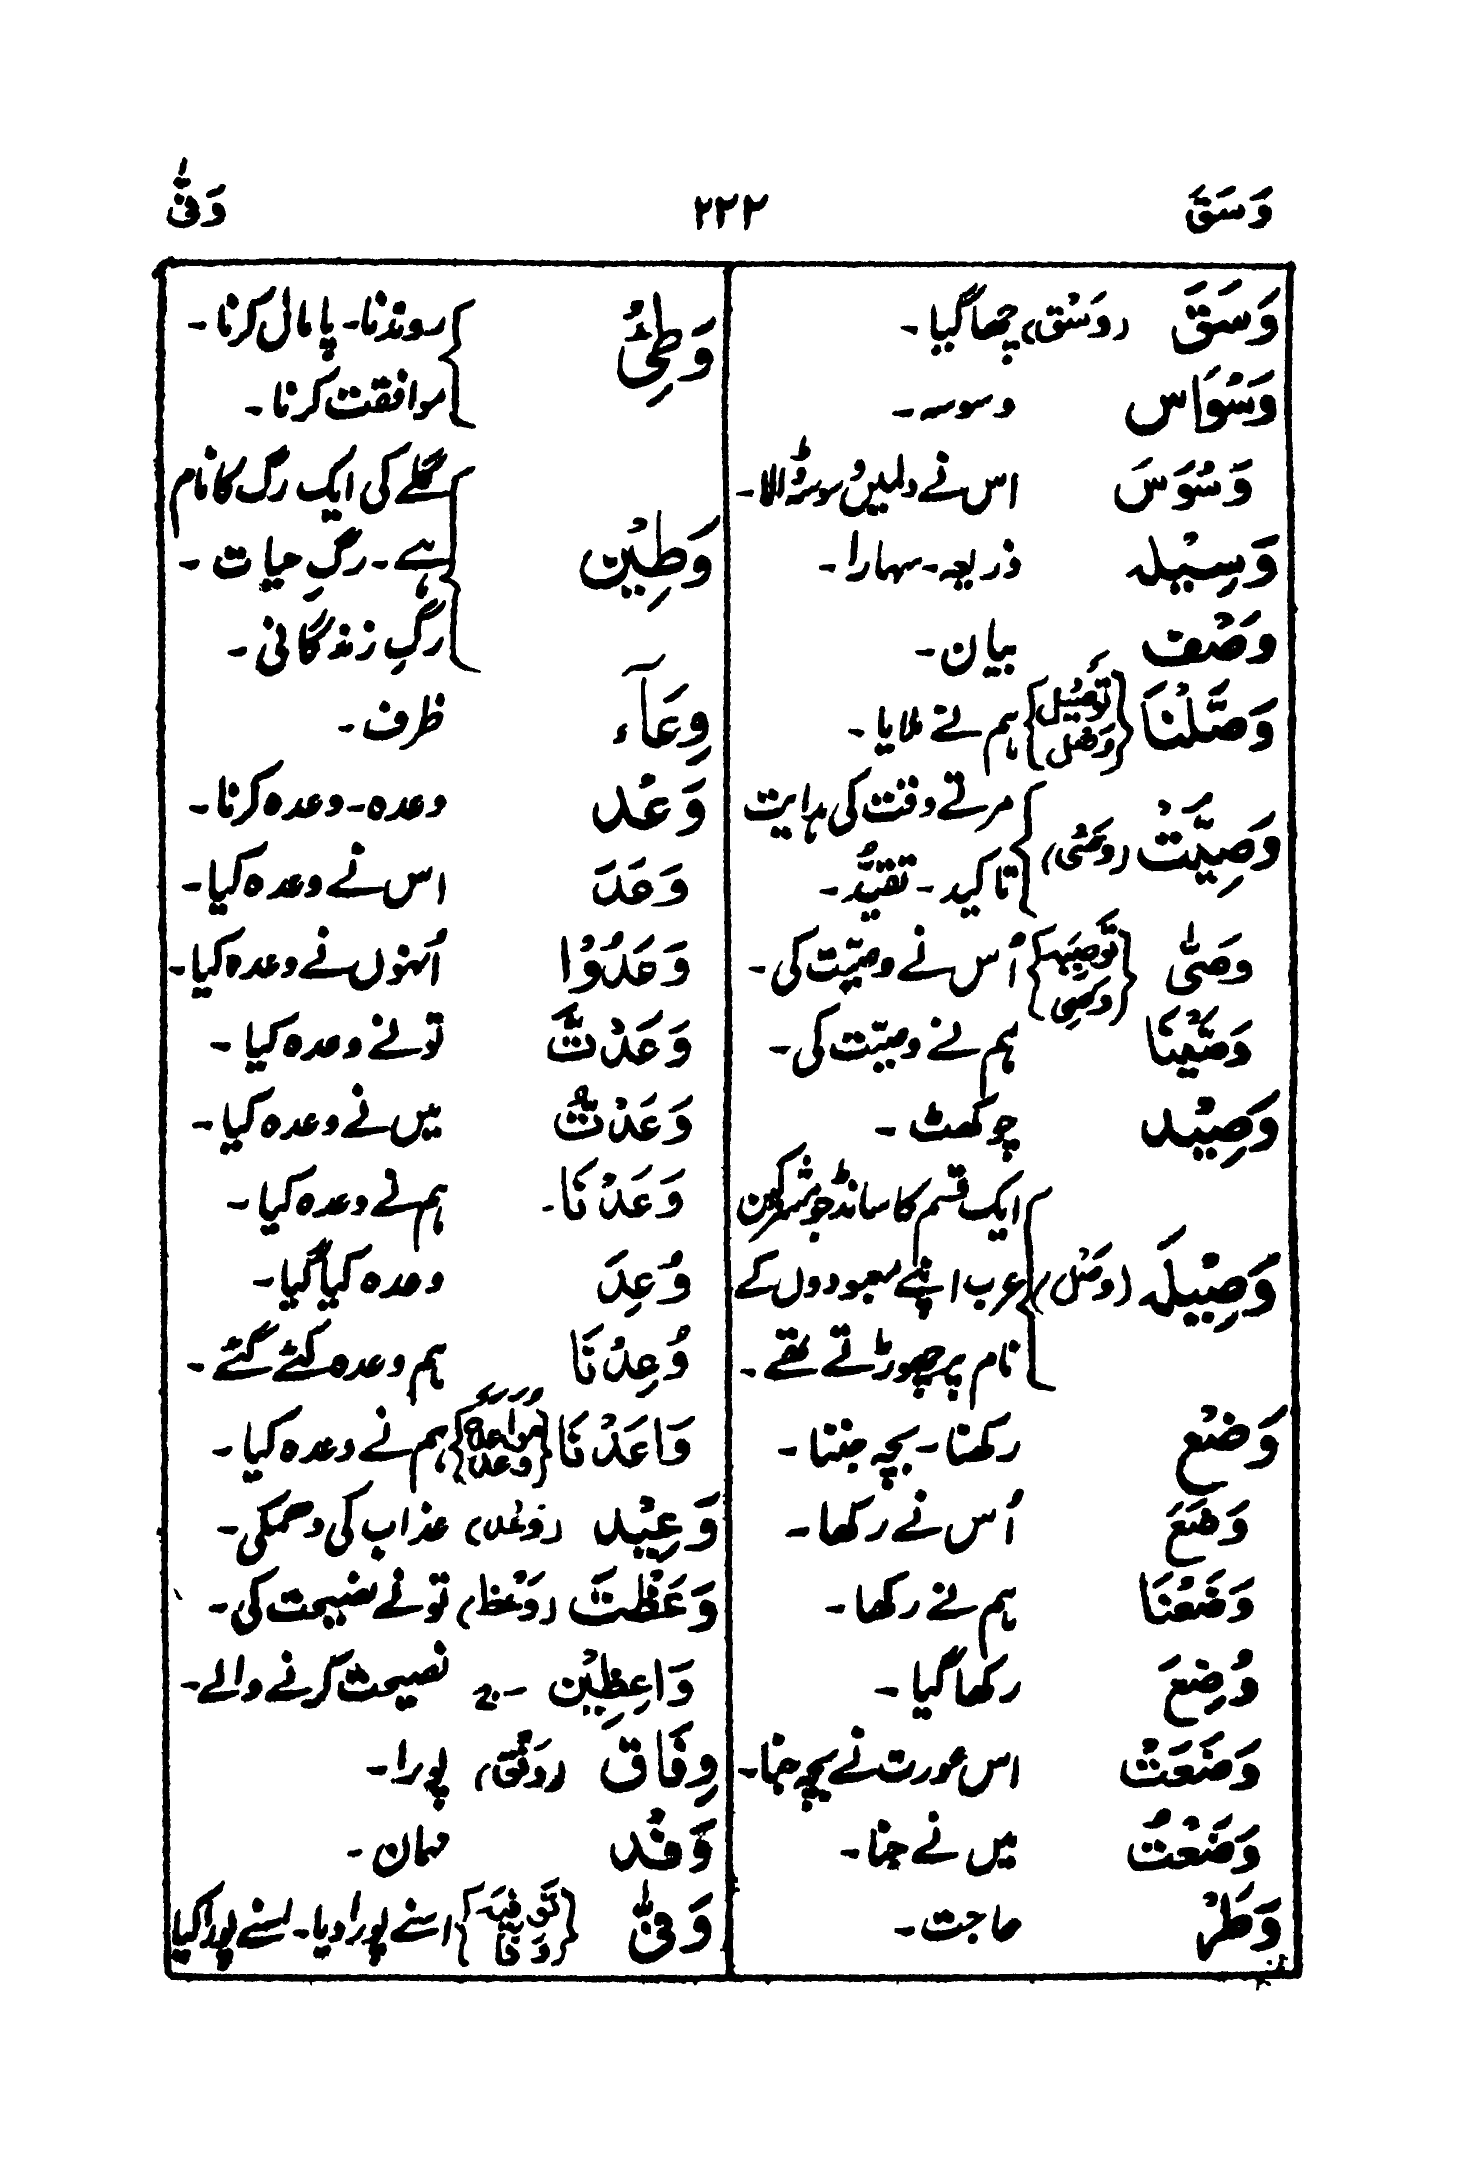 وَسَقَ ۲۳۳ وَفّٰى
وَسَقَ (وَسْق) چھا گیا۔
وَسْوَاس وسوسہ۔
وَسْوَسَ اس نے دلمیں وسوسہ ڈالا۔
وَسِیْلہ ذریعہ۔ سہارا۔
وَصْف بیان۔
وَصَّلْنَا {تَوْصِیْل وَصْل} ہم نے ملایا۔
وَصِیَّتْ (وصْی) مرتے وقت کی ہدایت
تاکید۔ تقیُّد۔
وَصّٰی {تَوصِیَہ وَصْی} اُس نے وصیّت کی۔
وَصَّیْنَا ہم نے وصیّت کی۔
وَصِیْد چوکھٹ۔
وَصِیْلَہ (وصْل) ایک قسم کا سانڈ جو مشرکین
عرب اپنے معبودوں کے
نام پر چھوڑتے تھے۔
وَضْع رکھنا۔ بچہ جننا۔
وَضَعَ اُس نے رکھا۔
وَضَعْنَا ہم نے رکھا۔
وُضِعَ رکھا گیا۔
وَضَعَتْ اس عورت نے بچہ جنا۔
وَضَعْتُ میں نے جنا۔
وَطَرْ حاجت۔
وَطِیْٔ روندنا۔ پامال کرنا۔
موافقت کرنا۔
وَطِیْن گلے کی ایک رگ کا نام
ہے۔ رگِ حیات۔
رگِ زندگانی۔
وِعَآء ظرف۔
وَعْد وعدہ۔ وعدہ کرنا۔
وَعَدَ اس نے وعدہ کیا۔
وَعَدُوْا اُنہوں نے وعدہ کیا۔
وَعَدْتَّ تو نے وعدہ کیا۔
وَعَدْتُّ میں نے وعدہ کیا۔
وَعَدْنَا۔ ہم نے وعدہ کیا۔
وُعِدَ وعدہ کیا گیا۔
وُعِدْنَا ہم وعدہ کئے گئے۔
وَاعَدْنَا {مواعدہ وعد} ہم نے وعدہ کیا۔
وَعِیْد (وَعْد) عذاب کی دھمکی۔
وَعَظْتَ (وَعْظ) تو نے نصیحت کی۔
وَاعِظِیْن ۔ج نصیحت کرنے والے۔
وِفَاق (وَفْق) پورا۔
وَفْد مہمان۔
وَفّٰى {تَوفیَہ وَفَا} اسنے پورا دیا۔ اسنے پورا کیا